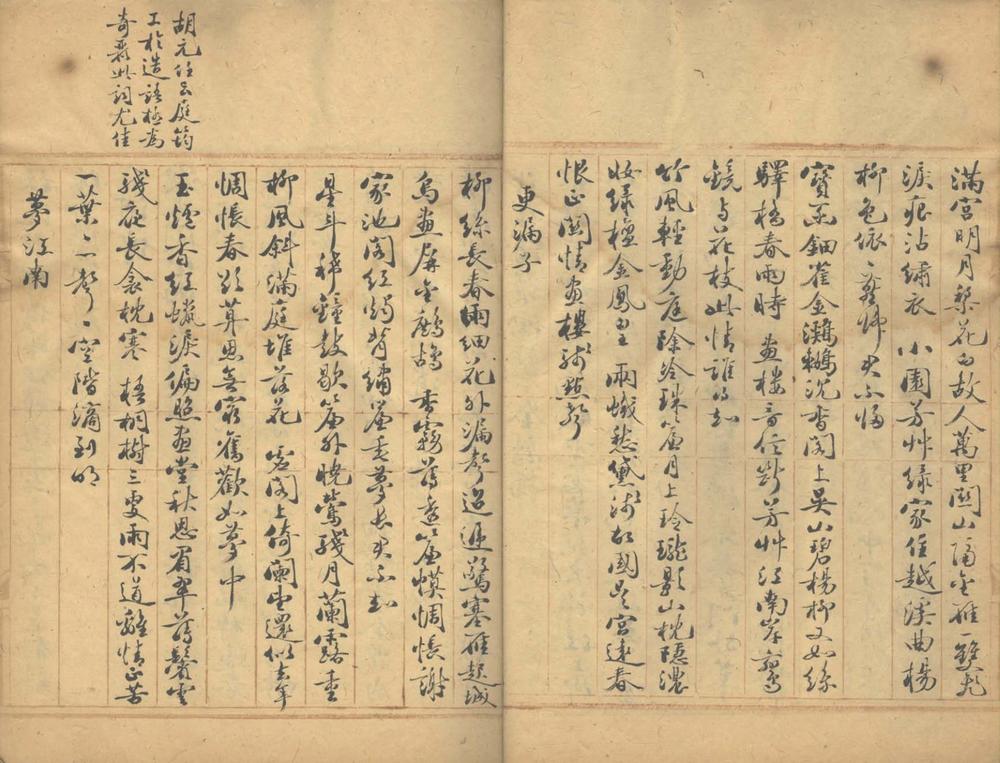 满宫明月梨花白故人萬里関山隔金雁一雙飛
淚痕沾繡衣 小園芳艸緑家住越溪曲楊
柳色依〻鷰歸君不歸
寶函鈿雀金鸂鶒沉香閣上吴山碧楊柳又如絲
驛橋春雨時 畫樓音信斷芳艸江南岸鸞
鏡与花枝此情誰得知
竹風輕動庭除冷珠簾月上玲瓏影山枕隱濃
妝緑檀金鳳皇 兩蛾愁黛淺故國吴宮遠春
恨正関情畫樓殘點聲
更漏子
柳絲長春雨細花外漏聲迢遞驚塞雁起城
烏畫屏金鷓鴣 香霧薄透簾幙惆悵謝
家池閣红燭背繡簾垂夢長君不知
星斗稀鐘鼓歇簾外曉鶯殘月蘭露重
柳風斜滿庭堆落花 虚閣上倚闌望還似去年
惆悵春欲暮思無窮舊歡如夢中
玉爐香红蠟淚偏照畫堂秋思眉翠薄鬢雲
殘夜長衾枕寒 梧桐樹三更雨不道離情正苦
一葉〻聲〻空階滴到明
夢江南
胡元任云庭筠
工於造語極為
奇麗此詞尤佳